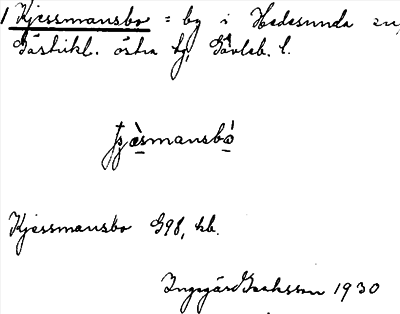 1 Kjessmansbo = by i Hedesunda sn,
Gästrikl. östra tg, Gävleb. l.
Kjessmansbo G98, kb.
Ingegärd Isaksson 1930